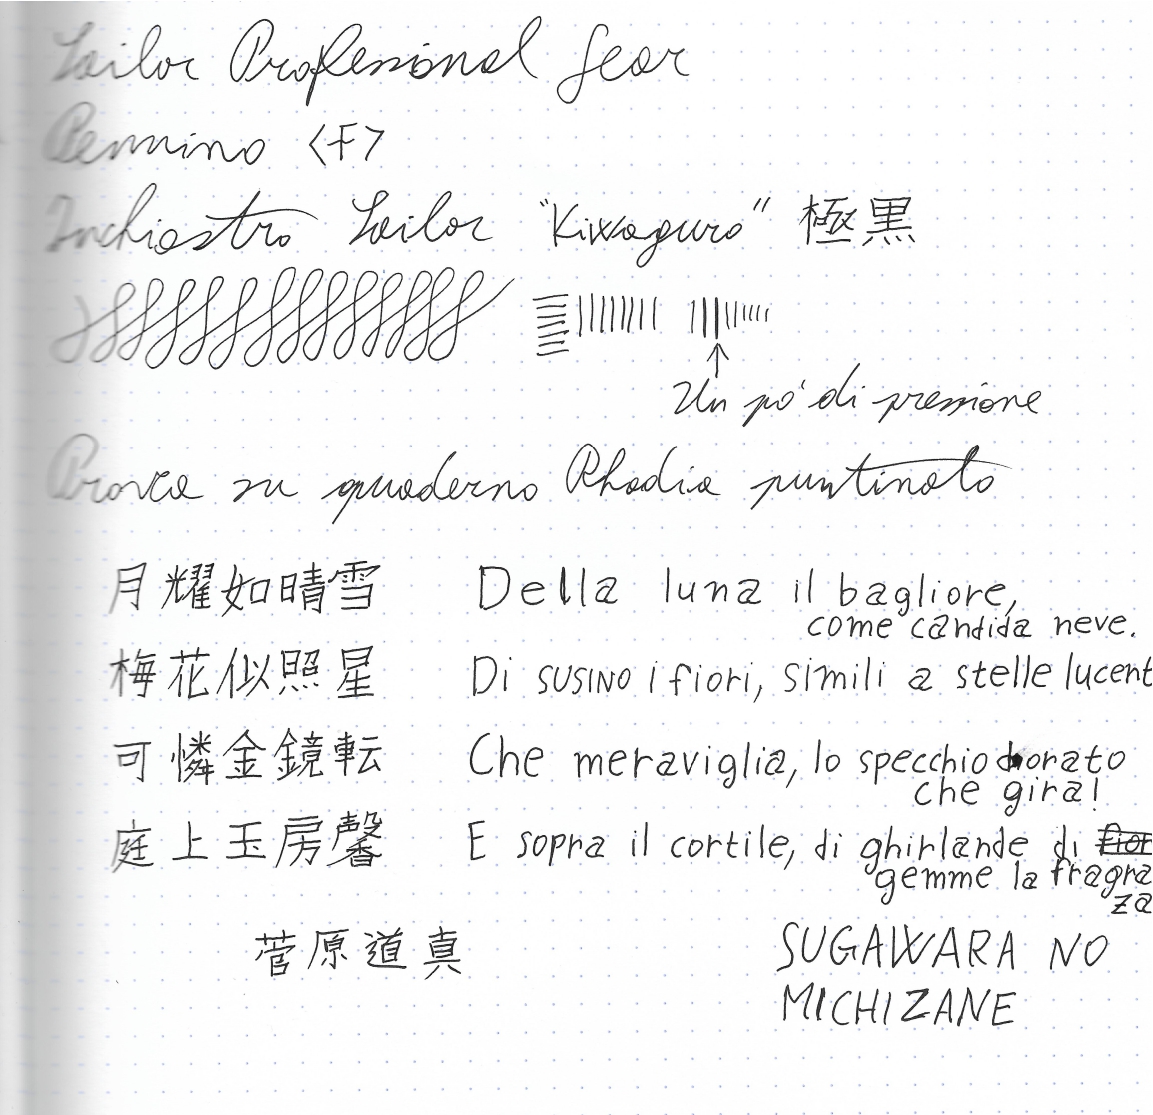 Sailor Professional Gear
Pennino <F>
Inchiostro Sailor "Kiwaguro" 極黒
Un po' di pressione
Prova su quaderno Rhodia puntinato
月耀如晴雪 Della luna il bagliore,
come candida neve.
梅花似照星 Di SUSINO i fiori, simili a stelle lucent
可憐金鏡転 Che meraviglia, lo specchio dorato
che gira!
庭上玉房馨 E sopra il cortile, di ghirlande di fior
gemme la fragra
za
菅原道真 SUGAWARA NO
MICHIZANE